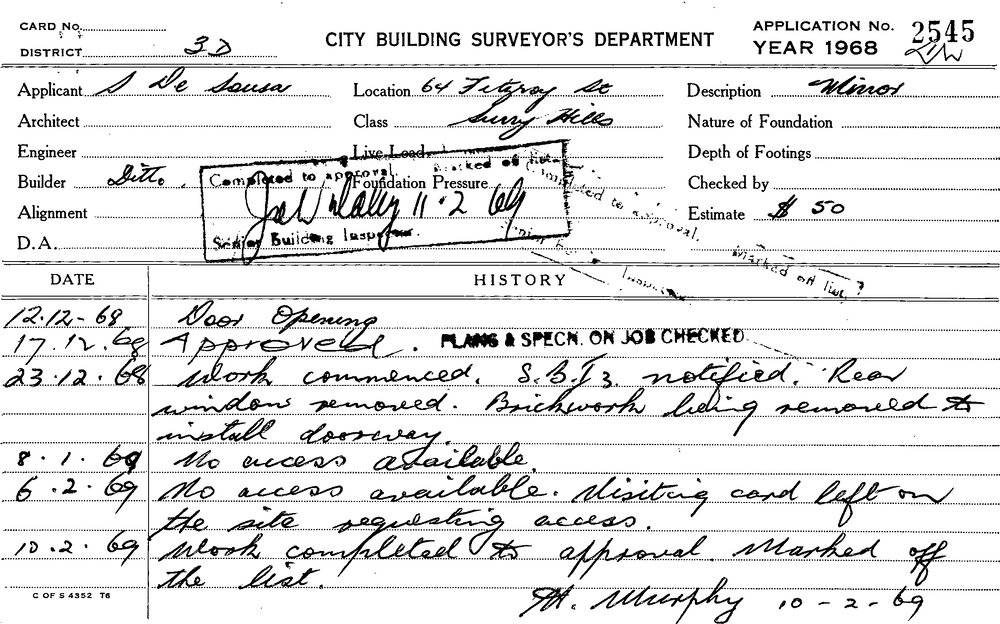 CARD No.
DISTRICT 3D
CITY BUILDING SURVEYOR'S DEPARTMENT
APPLICATION No. 2545
YEAR 1968
Applicant S De Sousa
Location 64 Fitzroy St
Description Minor
Architect
Class Surry Hills
Nature of Foundation
Engineer
Live Load
Depth of Footings
Builder Ditto.
Foundation Pressure
Checked by
Alignment
Estimate $ 50
D.A.
Completed to approval. Marked off list.
11.2 69
Senior Building Inspector.
Completed to approval.
Marked off list.
Senior Building Inspector
DATE HISTORY
12.12-68 Door Opening
17.12.68 Approved. PLANS & SPECN. ON JOB CHECKED.
23.12.68 Work commenced. S.B.I3. notified. Rear
window removed. Brickwork being removed to
install doorway.
8.1.69 No access available.
6.2.69 No access available. Visiting card left on
the site requesting access.
10.2.69 Work completed to approval. Marked off
the list.
C OF S 4352 T6
M. Murphy 10-2-69